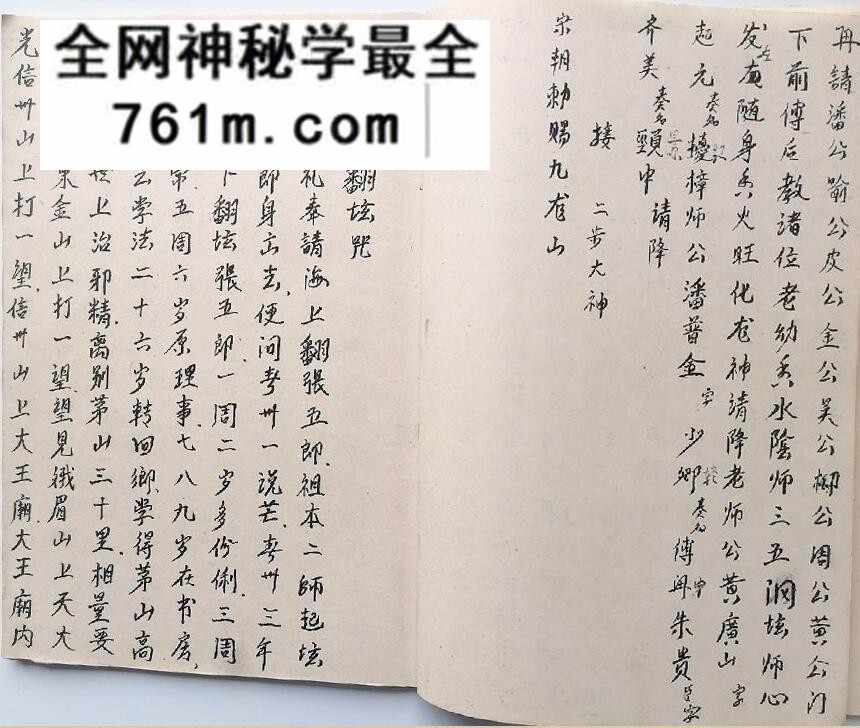 全网神秘学最全
761m.com
再請潘公喻公皮公金公吴公柳公周公黄公门
下前傅后教诸位老幼香水陰师三五洞坛师心
发左右随身香火旺化龙神請降老师公黄廣山字
起元奏名樟师公潘普金字少卿奏名傅冉朱贵
齐美奏名顕中請降
接二步大神
宋朝勅赐九龙山
翻坛咒
礼奉請海上翻張五郎祖本二師起坛
即身立去便问春州一说芒春州三年
下翻坛張五郎一周二岁多份俐三周
第五周六岁原理事七八九岁在书房
公学法二十六岁转回鄉学得茅山高
上治邪精离别茅山三十里相量要
金山上打一望望見峨眉山上天大
光信卅山上打一望信卅山上大王廟大王廟内